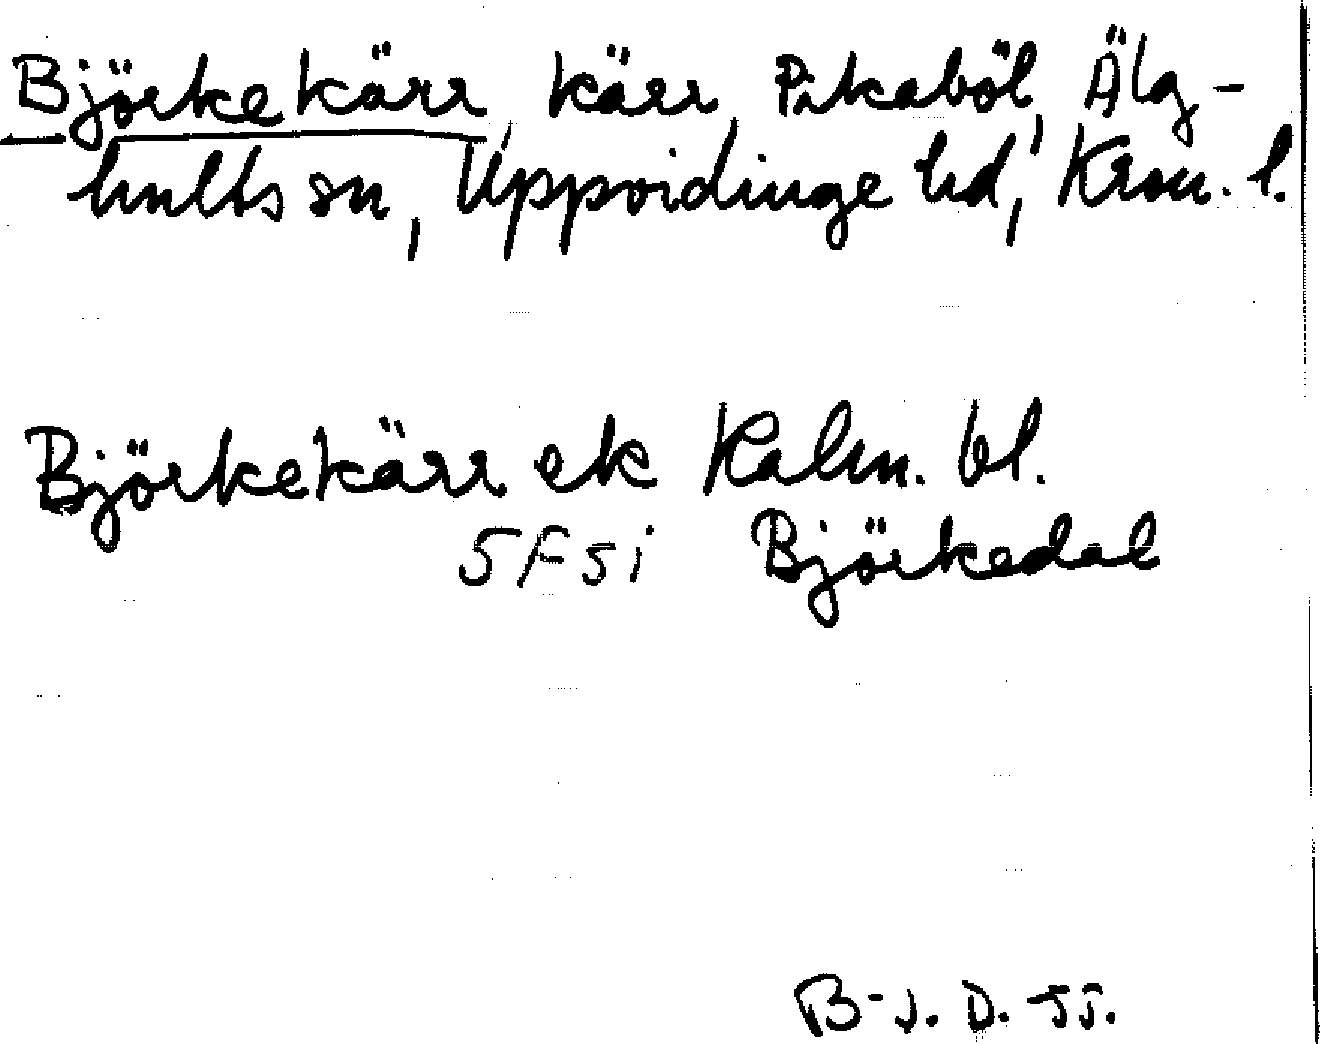 Björkekärr, kärr Pikaböl, Älg-
hults sn, Uppvidinge hd, Kron. l.
Björkekärr ek Kalm. bl.
5F5i Björkedal
B-J. D.